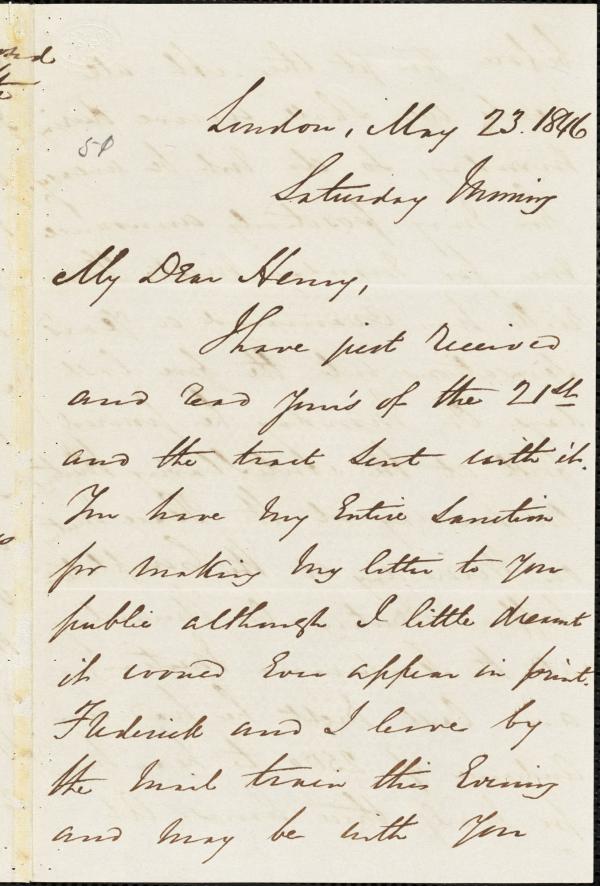 London, May 23. 1846
50
Saturday Morning
My Dear Henry,
I have just received
and read your's of the 21st
and the tract sent with it.
You have my entire sanction
for making my letter to you
public although I little dreamt
it would ever appear in print.
Frederick and I leave by
the mail train this Evening
and may be with you